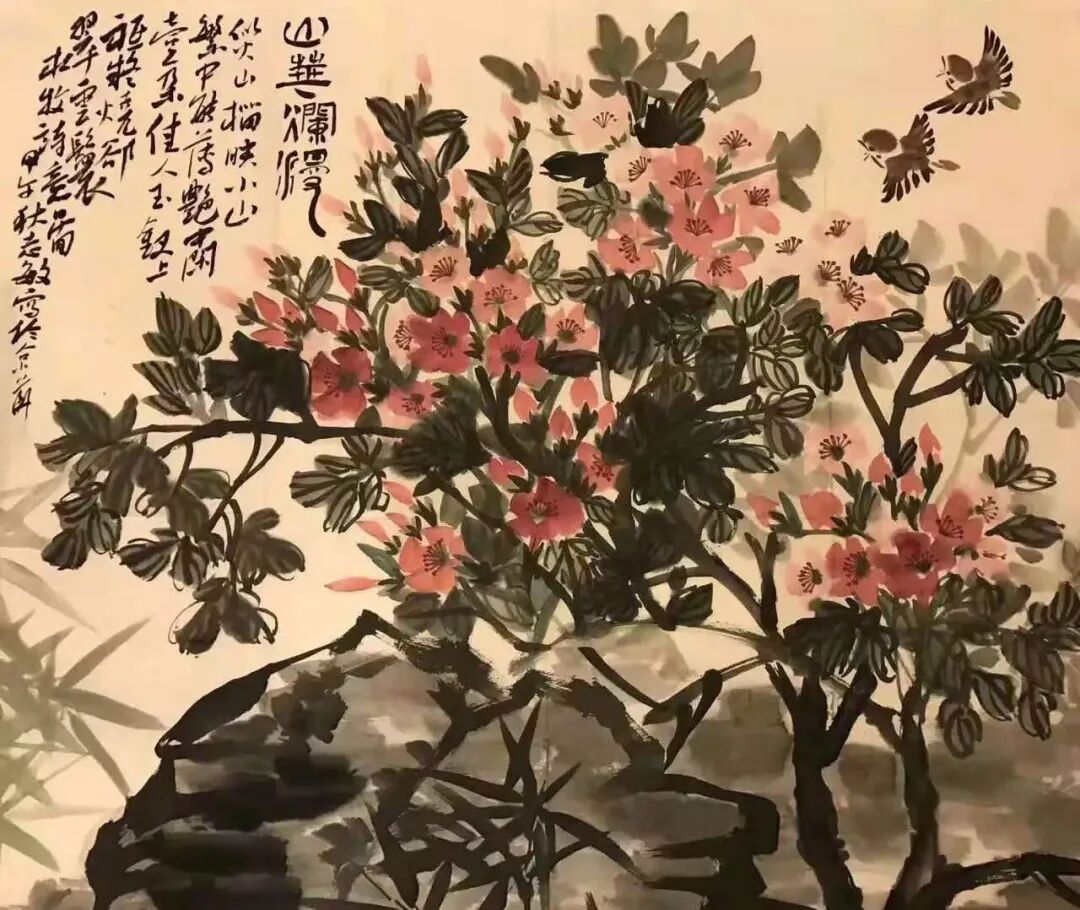 山華瀾漫
似火山榴映小山
繁中能薄艷中閑
壹朵佳人玉釵上
祗疑燒卻
翠雲鬟
杜牧詩意圖
甲午秋志敏寫於京華